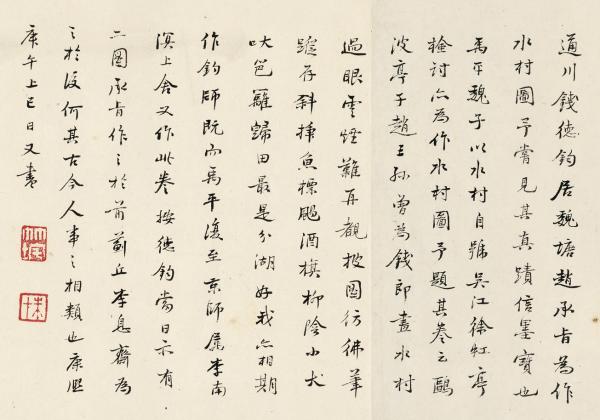 通川錢德鈞居魏塘趙承旨為作
水村圖予嘗見其真蹟信墨寶也
禹平魏子以水村自號吳江徐虹亭
檢討亦為作水村圖予題其卷云鷗
波亭子趙王孫曾為錢郎畫水村
過眼雲煙難再覩披圖彷彿筆
蹤存斜挿魚標颺酒旗柳陰小犬
吠笆籬歸田最是分湖好我亦相期
作釣師既而禹平復至京師屬李南
溟上舍又作此卷按德鈞當日亦有
二圖承旨作之於前薊丘李息齋為
之於後何其古今人事之相類也康熙
庚午上巳日又書